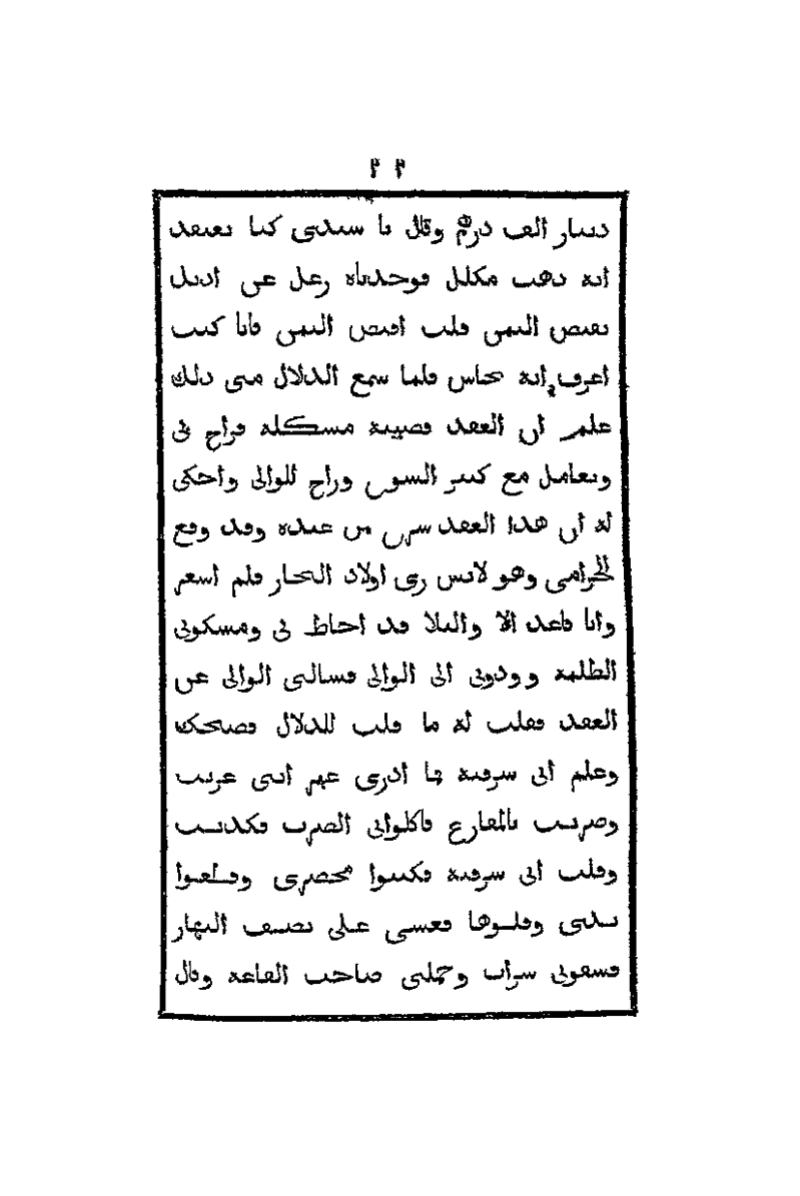 ٢٢
دينار الف درهم وقال يا سيدي كنا نعتقد
انه ذهب مكلل فوجدناه زغل عن اذنك
نقبض الثمن قلت اقبض الثمن فانا كنت
اعرف انه نحاس فلما سمع الدلال مني ذلك
علم ان العقد قضيته مشكلة فراح في
وتعامل مع كبير السوق وراح للوالي واحكى
له ان هذا العقد سرق من عنده وقد وقع
الحرامي وهو لابس زي اولاد التجار فلم اشعر
وانا قاعد الا والبلا قد احاط بي ومسكوني
الظلمة وودوني الى الوالي فسالني الوالي عن
العقد فقلت له ما قلت للدلال فضحك
وعلم اني سرقته فما ادري غير انني عريت
وضربت بالمقارع فاكلواني الضرب فكدبت
وقلت اني سرقته فكتبوا محضري وقطعوا
يدي وقلوها فغشي على نصف النهار
فسقوني شراب وحملني صاحب القاعة وقال